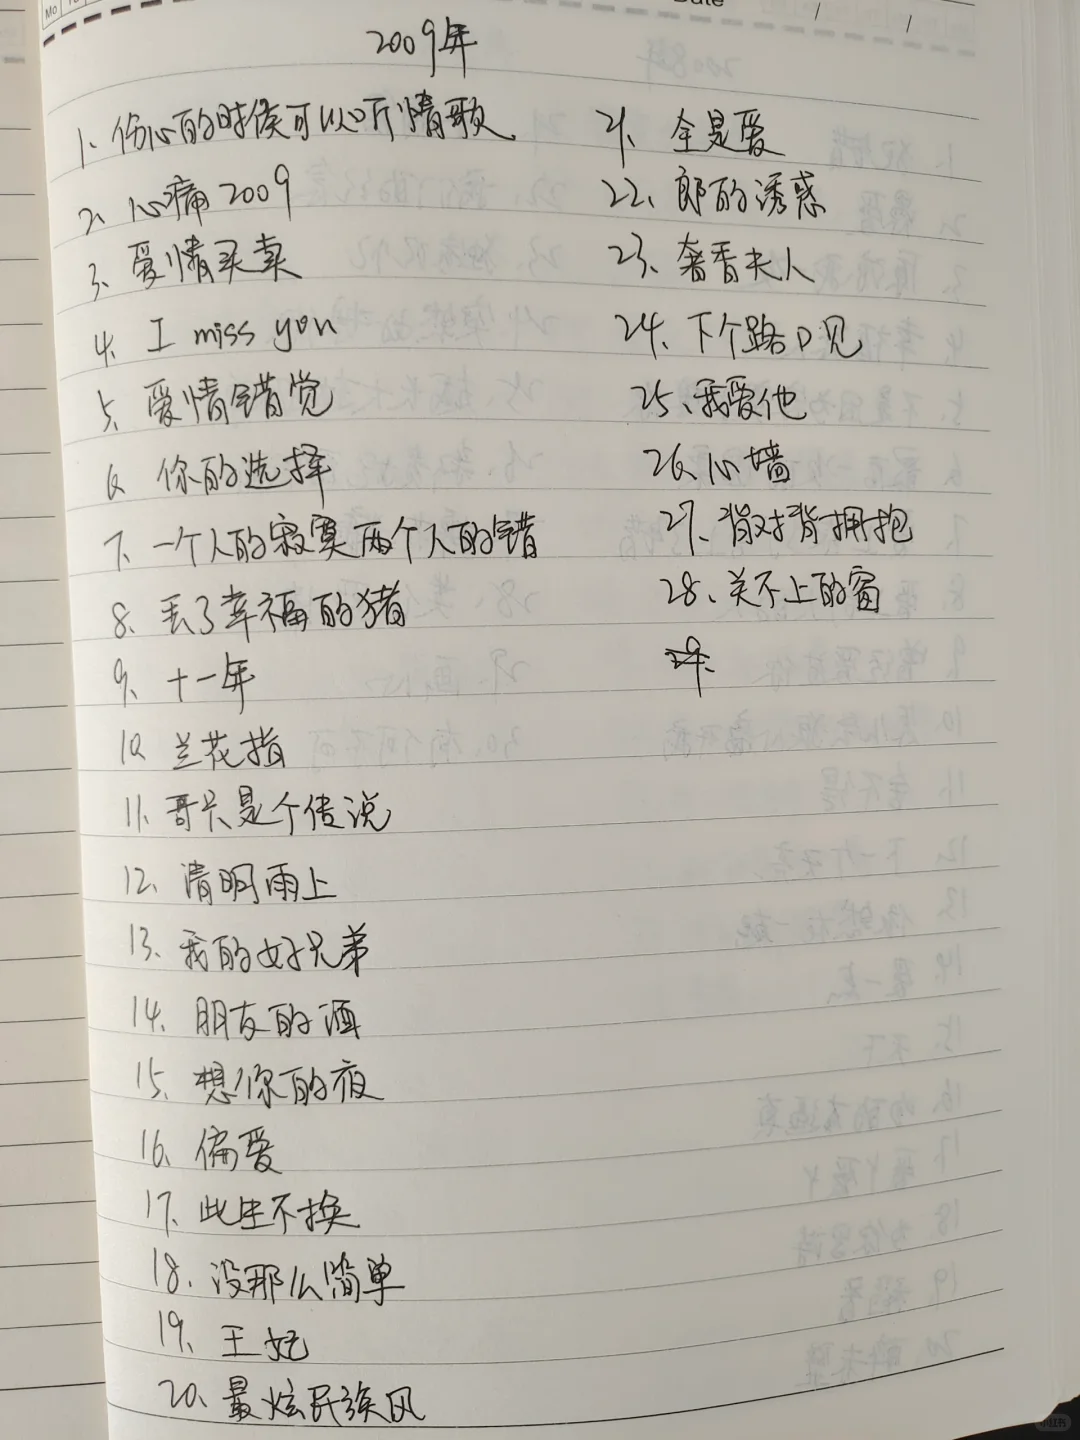 Mo
Date / /
2009年
1、伤心的时候可以听情歌
2、心痛2009
3、爱情买卖
4、I miss you
5、爱情错觉
6、你的选择
7、一个人的寂寞两个人的错
8、丢了幸福的猪
9、十一年
10、兰花指
11、哥只是个传说
12、清明雨上
13、我的好兄弟
14、朋友的酒
15、想你的夜
16、偏爱
17、此生不换
18、没那么简单
19、王妃
20、最炫民族风
21、全是爱
22、郎的诱惑
23、奢香夫人
24、下个路口见
25、我爱他
26、心墙
27、背对背拥抱
28、关不上的窗